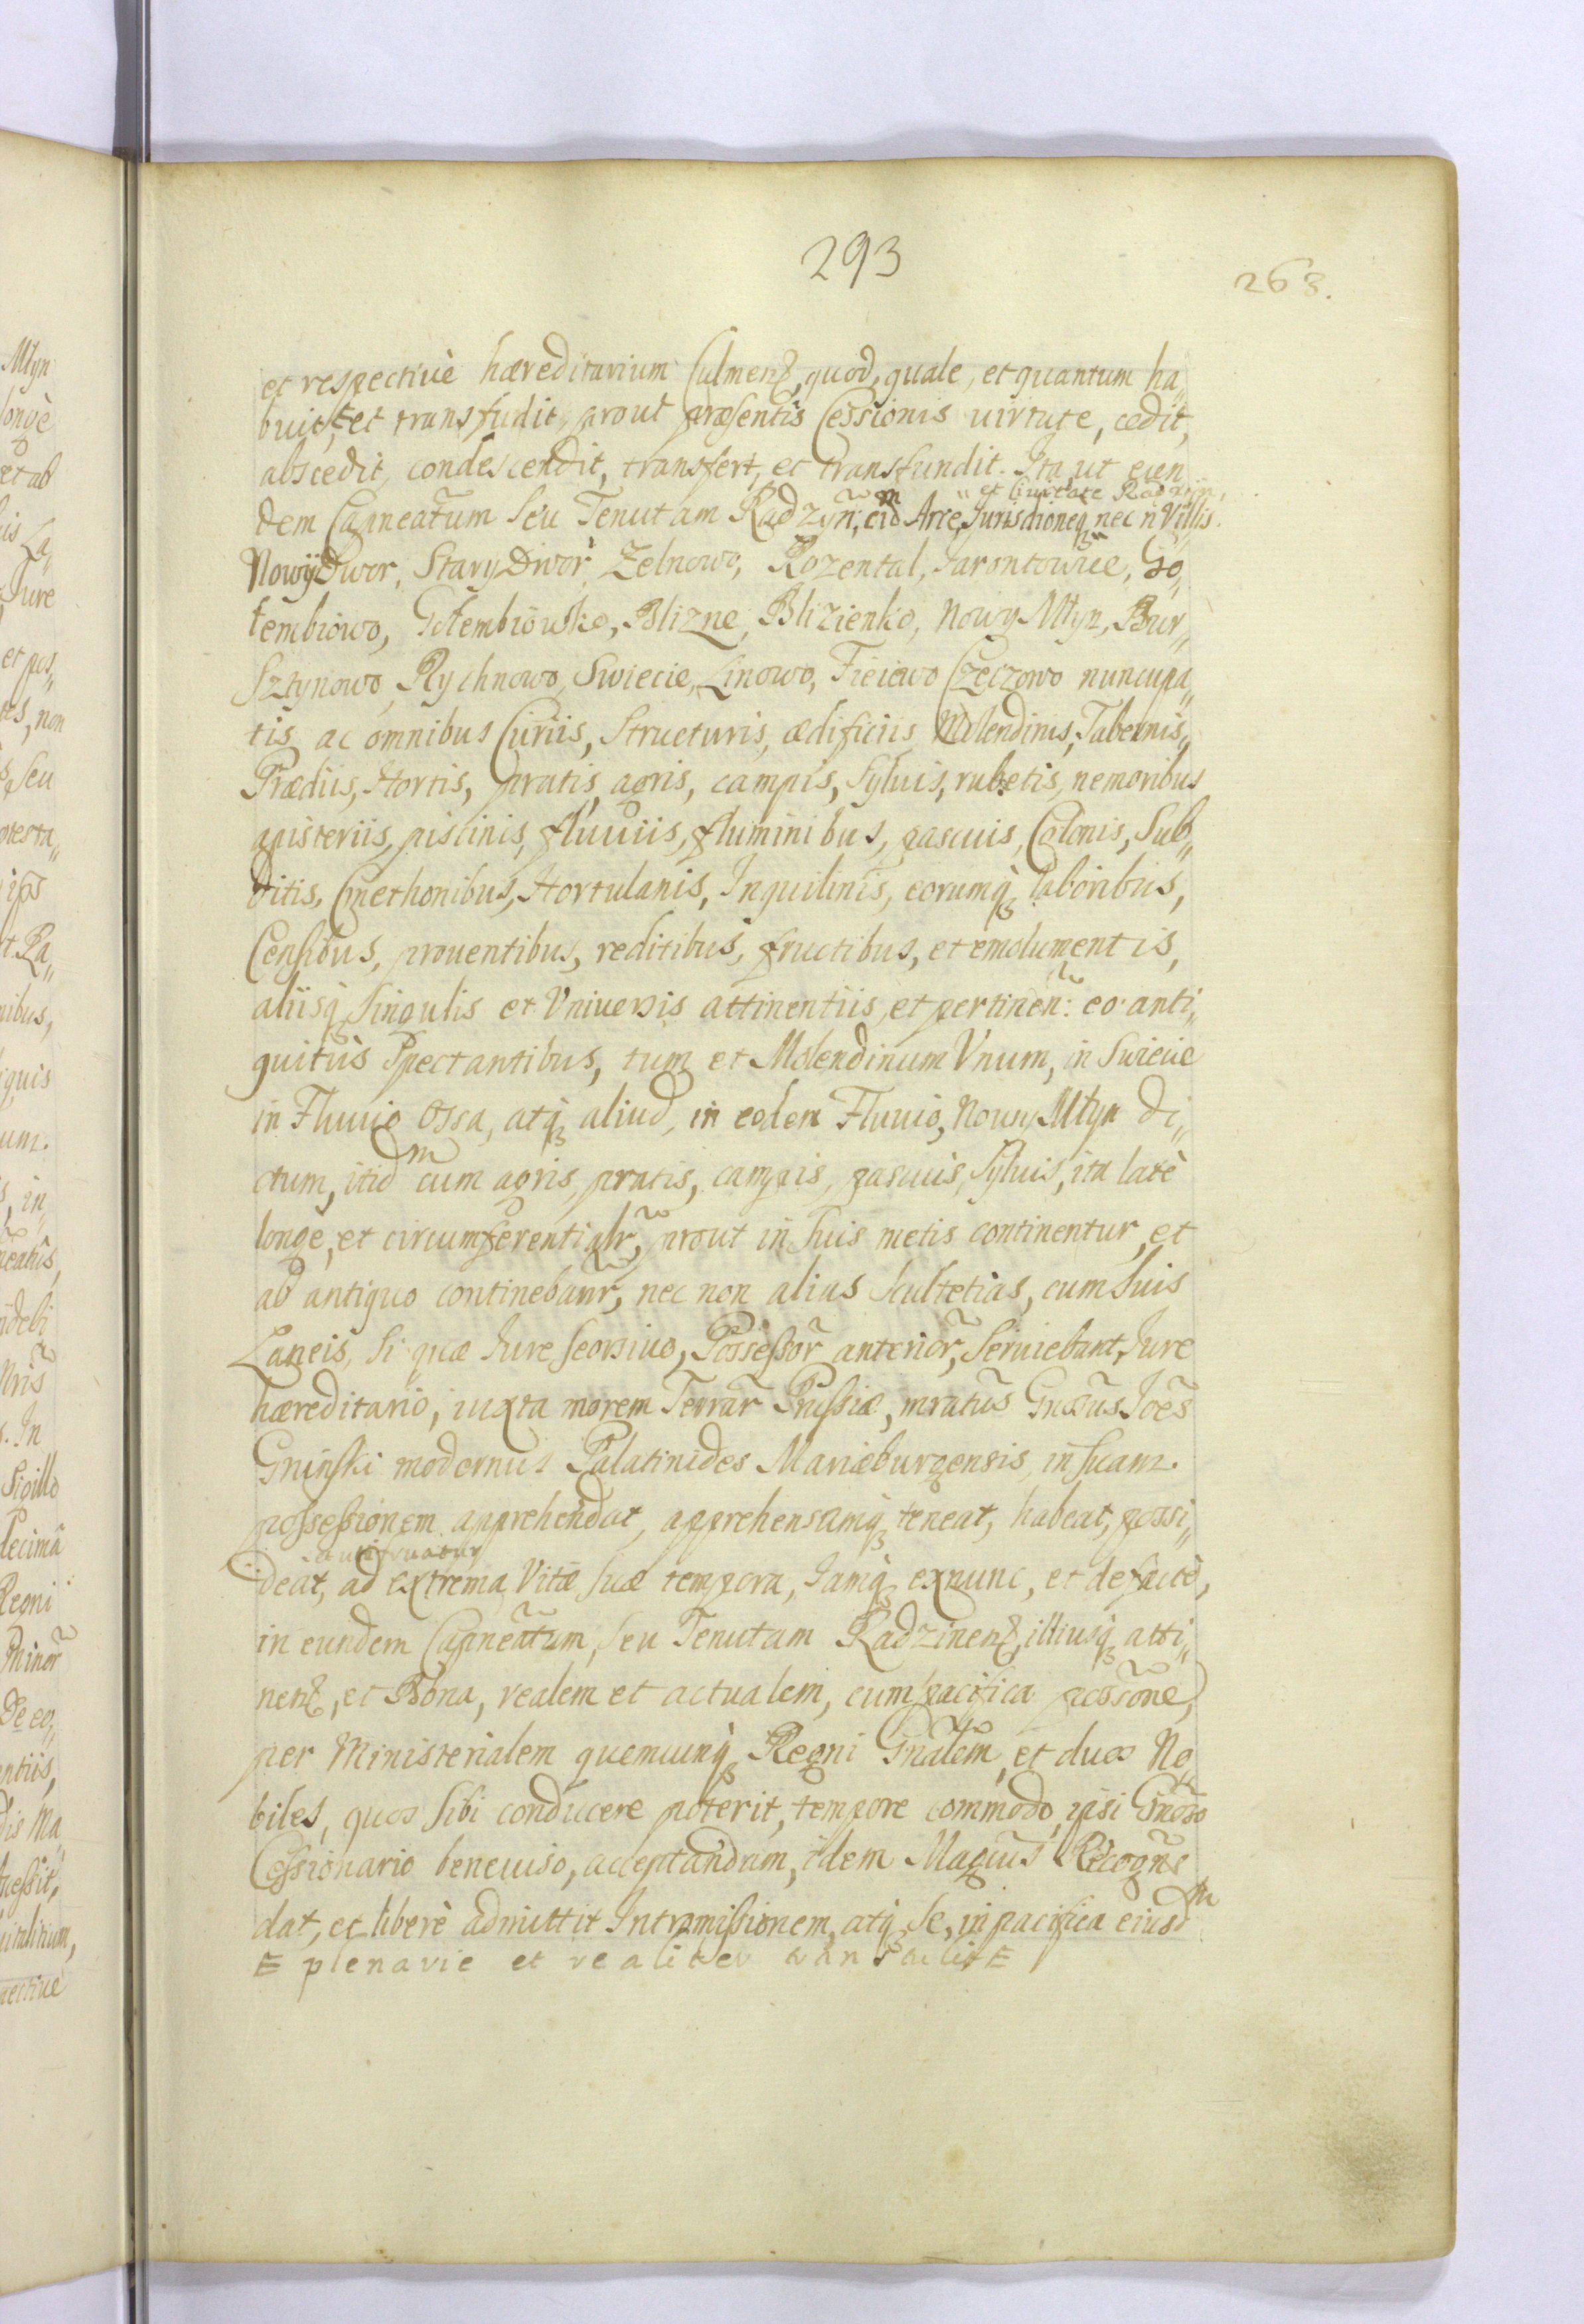 293
263.
et respectiuè hæreditarium Culmen̄, quod, quale, et quantum ha„
buit, E et transfudit, prout præsentis Cessionis uirtute, cedit,
abscedit, condescendit, transfert, et transfundit. Ita, ut eun
et Ciuitate Radzyn,
dem Capneat̃um seu Tenutam Radzyñ, cũ Arce, Jurisdioneq; nec ñ Villis.
Nowÿ Dwor, Stary Dwor, Zelnowo, Rozental, Jarontowice, Go„
łembiowo, Gołembiowsko, Blizne, Blizienko, Nowy Młyn, Bur„
sztynowo, Rychnowo, Swiecie, Linowo, Fieiewo Czeczowo nuncupa„
tis, ac omnibus Curiis, structuris, ædificiis Molendinis, Tabernis,
Prædiis, Hortis, pratis, agris, campis, syluis, rubetis, nemoribus
apisteriis, piscinis, fluuiis, fluminibus, pascuis, Colonis, Sub„
ditis, Cmethonibus, Hortulanis, Inquilinis, eorumq; laboribus,
Censibus, prouentibus, reditibus, fructibus, et emolumentis,
aliisq; singulis et Vniuersis attinentiis, et pertineñ: eo anti„
quitùs spectantibus, tum et Molendinum Vnum, in Swiecie
in Fluuio Ossa, atq; aliud, in eodem Fluuio, Nowy Młyn di„
ctum, itid̃m cum agris, pratis, campis, pascuis, syluis, ita latè
longe, et circumferentialr̃, prout in suis metis continentur, et
ab antiquo continebanr̃, nec non alias scultetias, cum suis
Laneis, si quæ Jure seorsiuo, Possessor̃ anterior̃, seruiebant, Jure
hæreditario, iuxta morem Terrar̃ Prussiæ, mratũs Gnosũs Joẽs
Gninski modernus Palatinides Mariæburgensis, in suam
possessionem apprehendat, apprehensamq; teneat, habeat, possi„
et utifruatur
deat, ad extrema Vitæ suæ tempora, Jamq; exnunc, et defacto,
in eundem Capneat̃um, seu Tenutam Radzinen̄, illiusq; atti„
nen̄, et Bona, realem et actualem, cum pacifica possõne,
per Ministerialem quemcunq; Regni Gnãlem, et duos No„
biles, quos sibi conducere poterit, tempore commodo, ipsi Gnõso
Cessionario beneuiso, acceptandam, idem Magcũs Recogñs
dat, et liberè admittit Intromissionem, atq; se, in pacifica eiusd̃m
E plenarie et realiter transtulit E